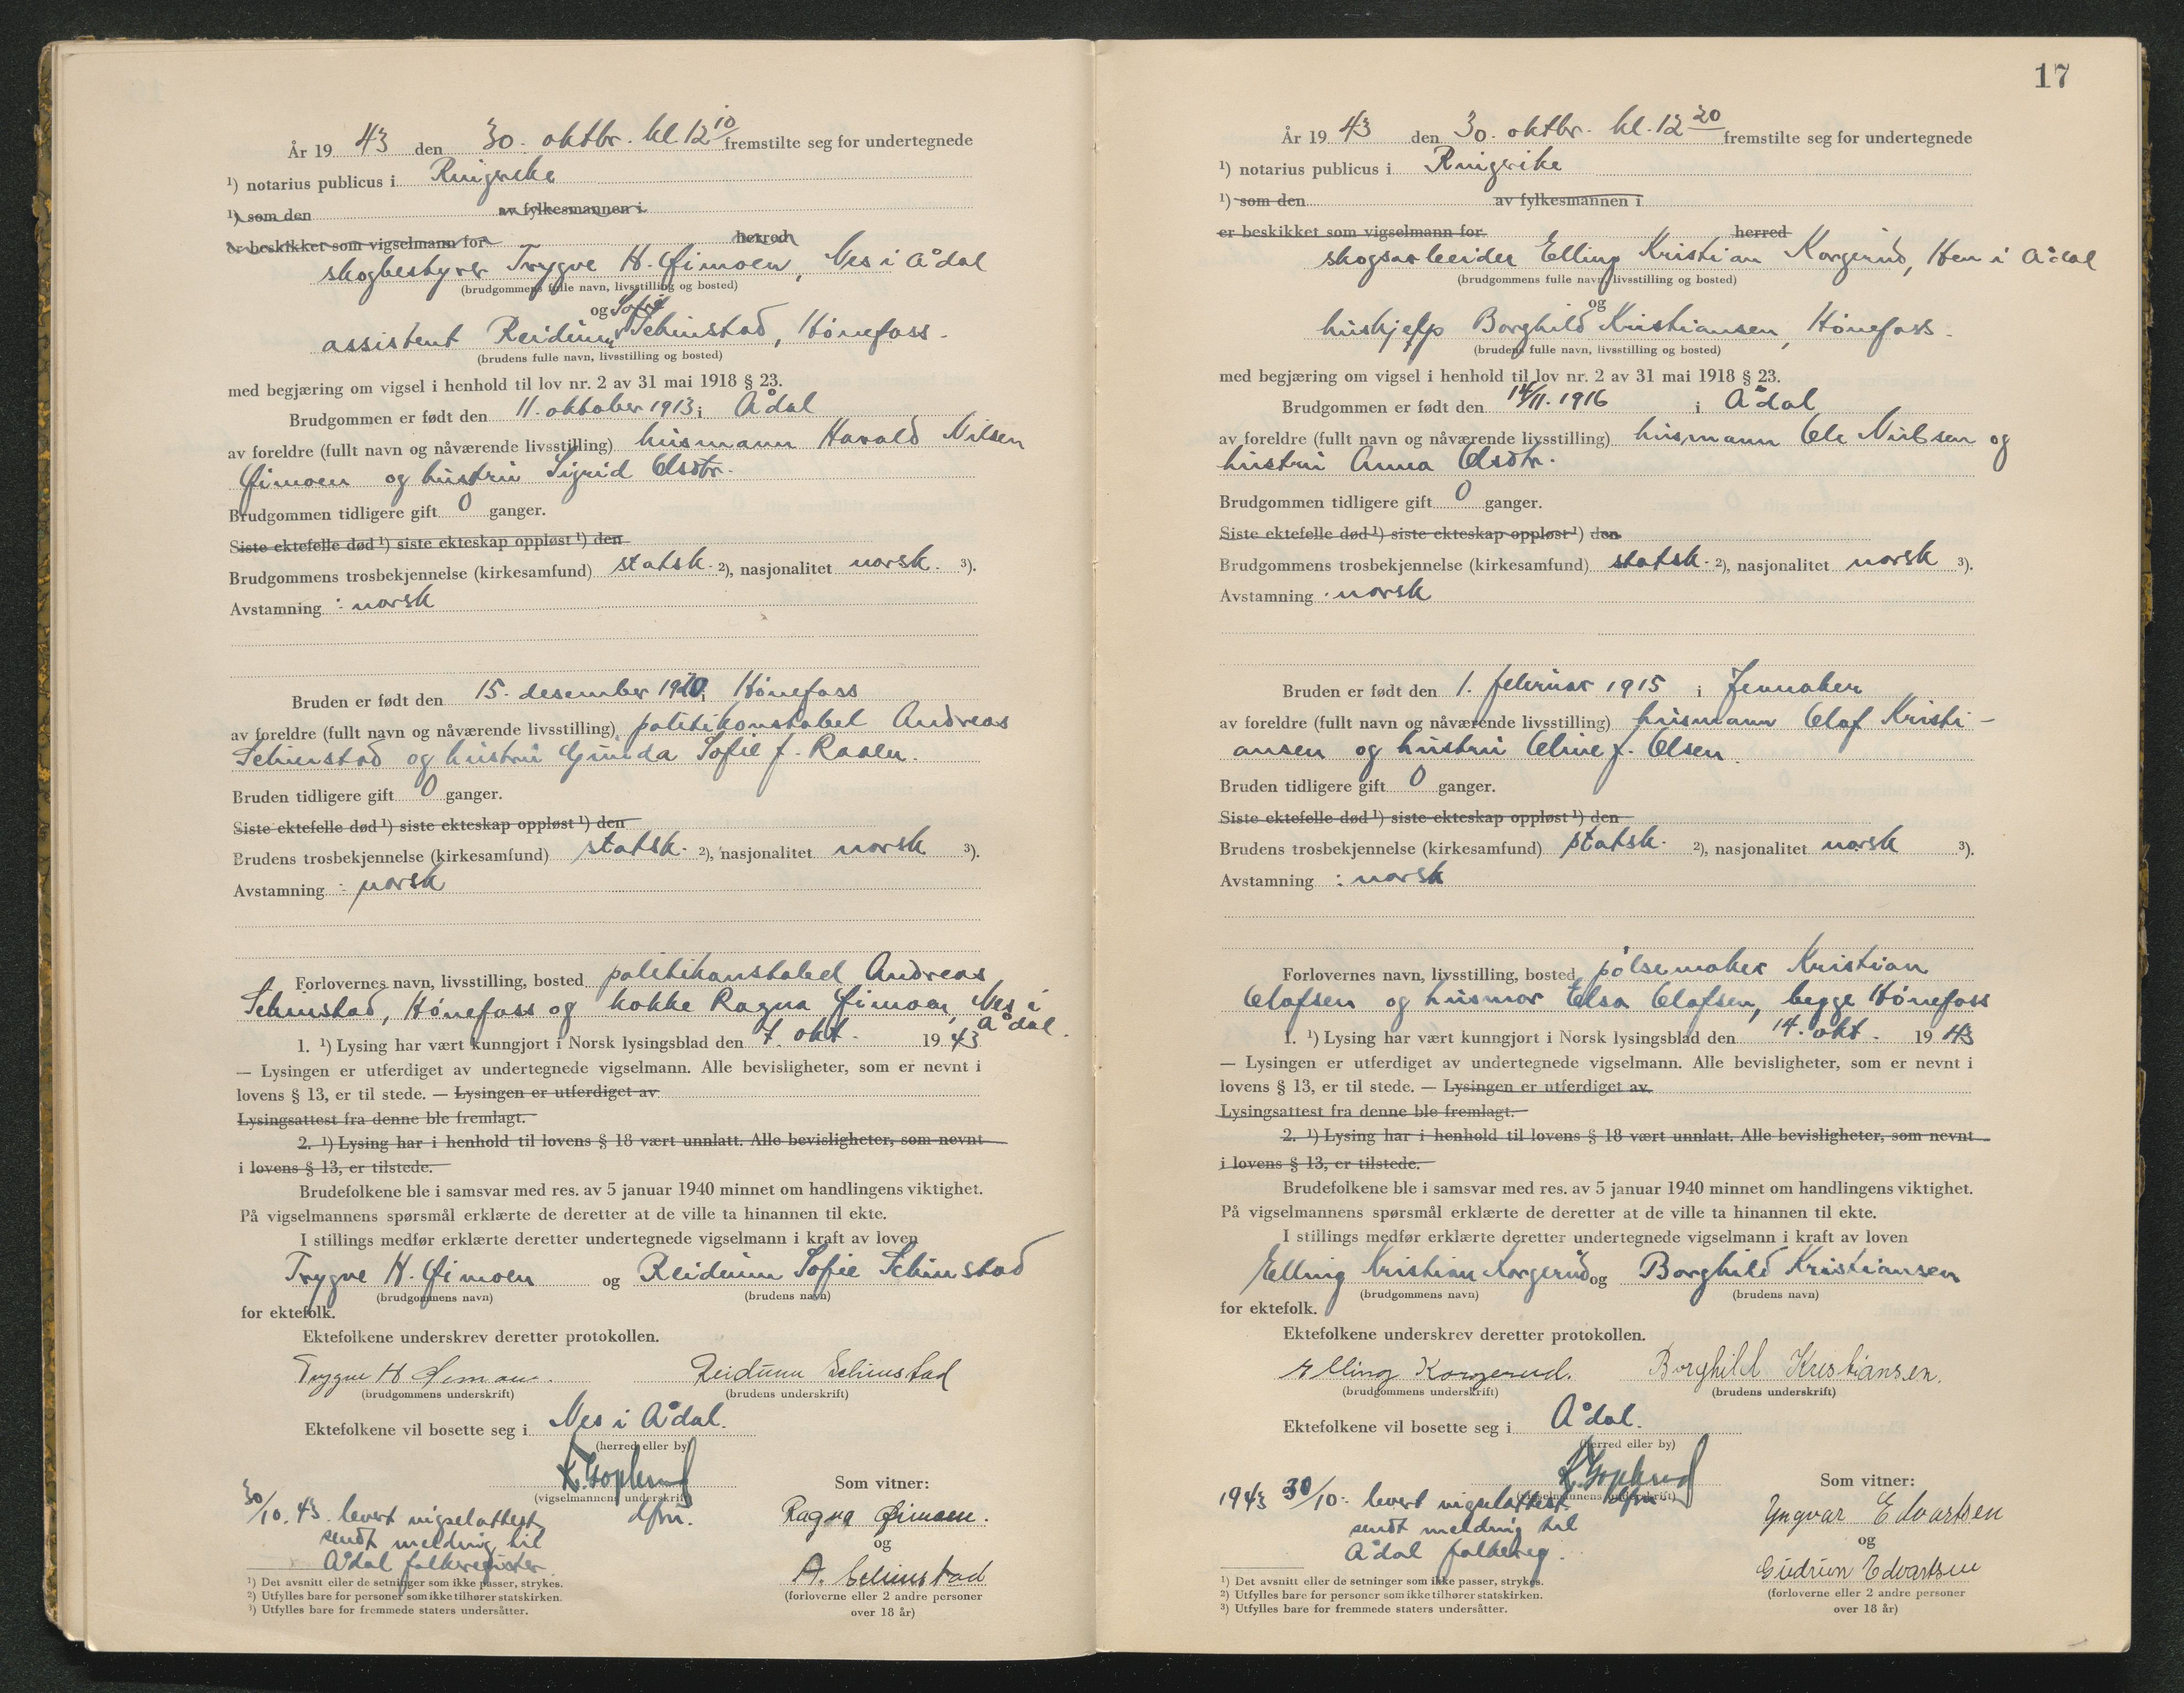 År 19 43 den 30. oktbr. kl 12 10 fremstilte seg for undertegnede
1) notarius publicus i Ringerike
1) som den av fylkesmannen i
er beskikket som vigselmann for herred
skogbestyrer Trygve H. Øimoen, Nes i Ådal
(brudgommens fulle navn, livsstilling og bosted)
og Sofie
assistent Reidunn Schinstad, Hönefoss.
(brudens fulle navn, livsstilling og bosted)
med begjæring om vigsel i henhold til lov nr. 2 av 31 mai 1918 § 23.
Brudgommen er født den 11. oktober 1913 i Ådal
av foreldre (fullt navn og nåværende livsstilling) husmann Harald Nilsen
Øimoen og hustru Sigrid Olsdtr.
Brudgommen tidligere gift 0 ganger.
Siste ektefelle død 1) siste ekteskap oppløst 1) den
Brudgommens trosbekjennelse (kirkesamfund) statsk. 2), nasjonalitet norsk. 3).
Avstamning : norsk
Bruden er født den 15. desember 1920 i Hönefoss
av foreldre (fullt navn og nåværende livsstilling) politikonstabel Andreas
Schinstad og hustru Gunda Sofie f. Raaen.
Bruden tidligere gift 0 ganger.
Siste ektefelle død 1) siste ekteskap oppløst 1) den
Brudens trosbekjennelse (kirkesamfund) statsk. 2), nasjonalitet norsk 3).
Avstamning : norsk
Forlovernes navn, livsstilling, bosted politikonstabel Andreas
Schinstad, Hönefoss og kokke Ragna Øimoen, Nes i
Ådal.
1. 1) Lysing har vært kunngjort i Norsk lysingsblad den 7. okt. 19 43
— Lysingen er utferdiget av undertegnede vigselmann. Alle bevisligheter, som er nevnt i
lovens § 13, er til stede. — Lysingen er utferdiget av
Lysingsattest fra denne ble fremlagt.
2. 1) Lysing har i henhold til lovens § 18 vært unnlatt. Alle bevisligheter, som nevnt
i lovens § 13, er tilstede.
Brudefolkene ble i samsvar med res. av 5 januar 1940 minnet om handlingens viktighet.
På vigselmannens spørsmål erklærte de deretter at de ville ta hinannen til ekte.
I stillings medfør erklærte deretter undertegnede vigselmann i kraft av loven
Trygve H. Øimoen og Reidunn Sofie Schinstad
(brudgommens navn) (brudens navn)
for ektefolk.
Ektefolkene underskrev deretter protokollen.
Trygve H Øimoen. Reidunn Schinstad
(brudgommens underskrift) (brudens underskrift)
Ektefolkene vil bosette seg i Nes i Ådal.
(herred eller by)
K. Goplerud
(vigselmannens underskrift)
Som vitner:
30/10. 43. levert vigselattest
sendt melding til
Ådal folkeregister
Ragna Øimoen.
og
A. Schinstad
(forloverne eller 2 andre personer
over 18 år)
1) Det avsnitt eller de setninger som ikke passer, strykes.
2) Utfylles bare for personer som ikke tilhører statskirken.
3) Utfylles bare for fremmede staters undersåtter.
17
År 19 43 den 30. oktbr. kl. 12 20 fremstilte seg for undertegnede
1) notarius publicus i Ringerike
1) som den av fylkesmannen i
er beskikket som vigselmann for herred
skogsarbeider Elling Kristian Korgerud, Hen i Ådal
(brudgommens fulle navn, livsstilling og bosted)
og
hushjelp Borghild Kristiansen, Hönefoss.
(brudens fulle navn, livsstilling og bosted)
med begjæring om vigsel i henhold til lov nr. 2 av 31 mai 1918 § 23.
Brudgommen er født den 14/11. 1916 i Ådal
av foreldre (fullt navn og nåværende livsstilling) husmann Ole Nilsen og
hustru Anna Olsdtr.
Brudgommen tidligere gift 0 ganger.
Siste ektefelle død 1) siste ekteskap oppløst 1) den
Brudgommens trosbekjennelse (kirkesamfund) statsk. 2), nasjonalitet norsk 3).
Avstamning : norsk
Bruden er født den 1. februar 1915 i Jevnaker
av foreldre (fullt navn og nåværende livsstilling) husmann Olaf Kristi-
ansen og hustru Oline f. Olsen.
Bruden tidligere gift 0 ganger.
Siste ektefelle død 1) siste ekteskap oppløst 1) den
Brudens trosbekjennelse (kirkesamfund) statsk. 2), nasjonalitet norsk 3).
Avstamning : norsk
Forlovernes navn, livsstilling, bosted pölsemaker Kristian
Olafsen og husmor Elsa Olafsen, begge Hönefoss
1. 1) Lysing har vært kunngjort i Norsk lysingsblad den 14. okt. 19 43
— Lysingen er utferdiget av undertegnede vigselmann. Alle bevisligheter, som er nevnt i
lovens § 13, er til stede. — Lysingen er utferdiget av
Lysingsattest fra denne ble fremlagt.
2. 1) Lysing har i henhold til lovens § 18 vært unnlatt. Alle bevisligheter, som nevnt
i lovens § 13, er tilstede.
Brudefolkene ble i samsvar med res. av 5 januar 1940 minnet om handlingens viktighet.
På vigselmannens spørsmål erklærte de deretter at de ville ta hinannen til ekte.
I stillings medfør erklærte deretter undertegnede vigselmann i kraft av loven
Elling Kristian Korgerud og Borghild Kristiansen
(brudgommens navn) (brudens navn)
for ektefolk.
Ektefolkene underskrev deretter protokollen.
Elling Korgerud. Borghild Kristiansen.
(brudgommens underskrift) (brudens underskrift)
Ektefolkene vil bosette seg i Ådal.
(herred eller by)
K. Goplerud
(vigselmannens underskrift)
Som vitner:
1943 30/10. levert vigselattest.
sendt melding til
Ådal folkereg.
Yngvar Edvartsen
og
Gudrun Edvartsen
(forloverne eller 2 andre personer
over 18 år)
1) Det avsnitt eller de setninger som ikke passer, strykes.
2) Utfylles bare for personer som ikke tilhører statskirken.
3) Utfylles bare for fremmede staters undersåtter.